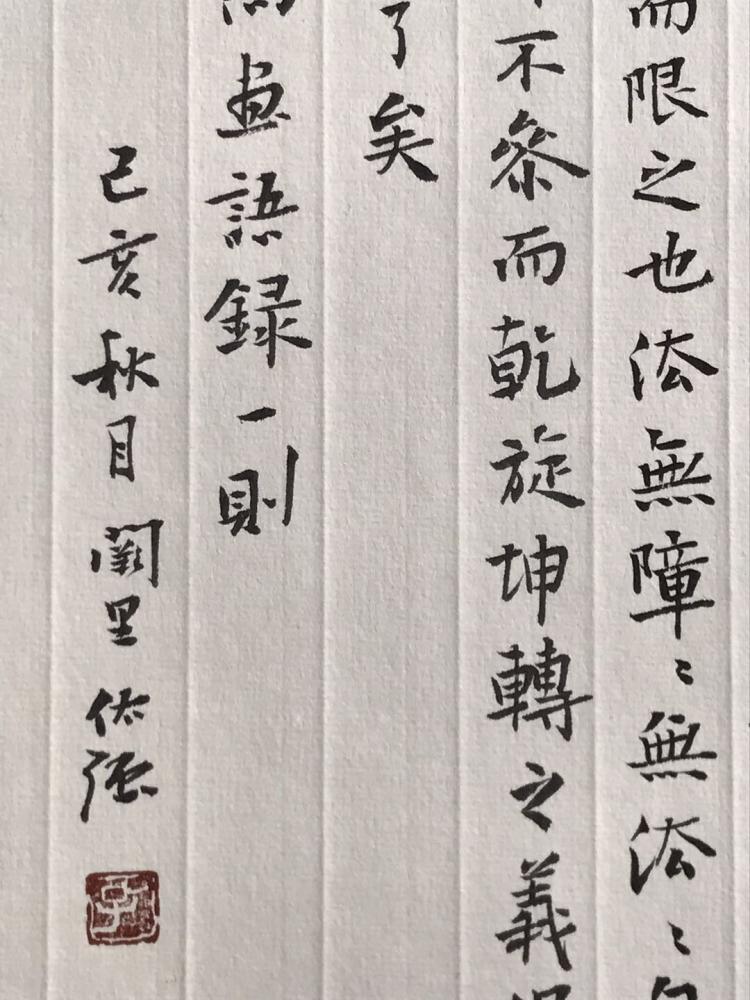 而限之也法無障〻無法〻
不參而乾旋坤轉之義
了矣
尚畫語録一則
己亥秋月 闕里 佑強